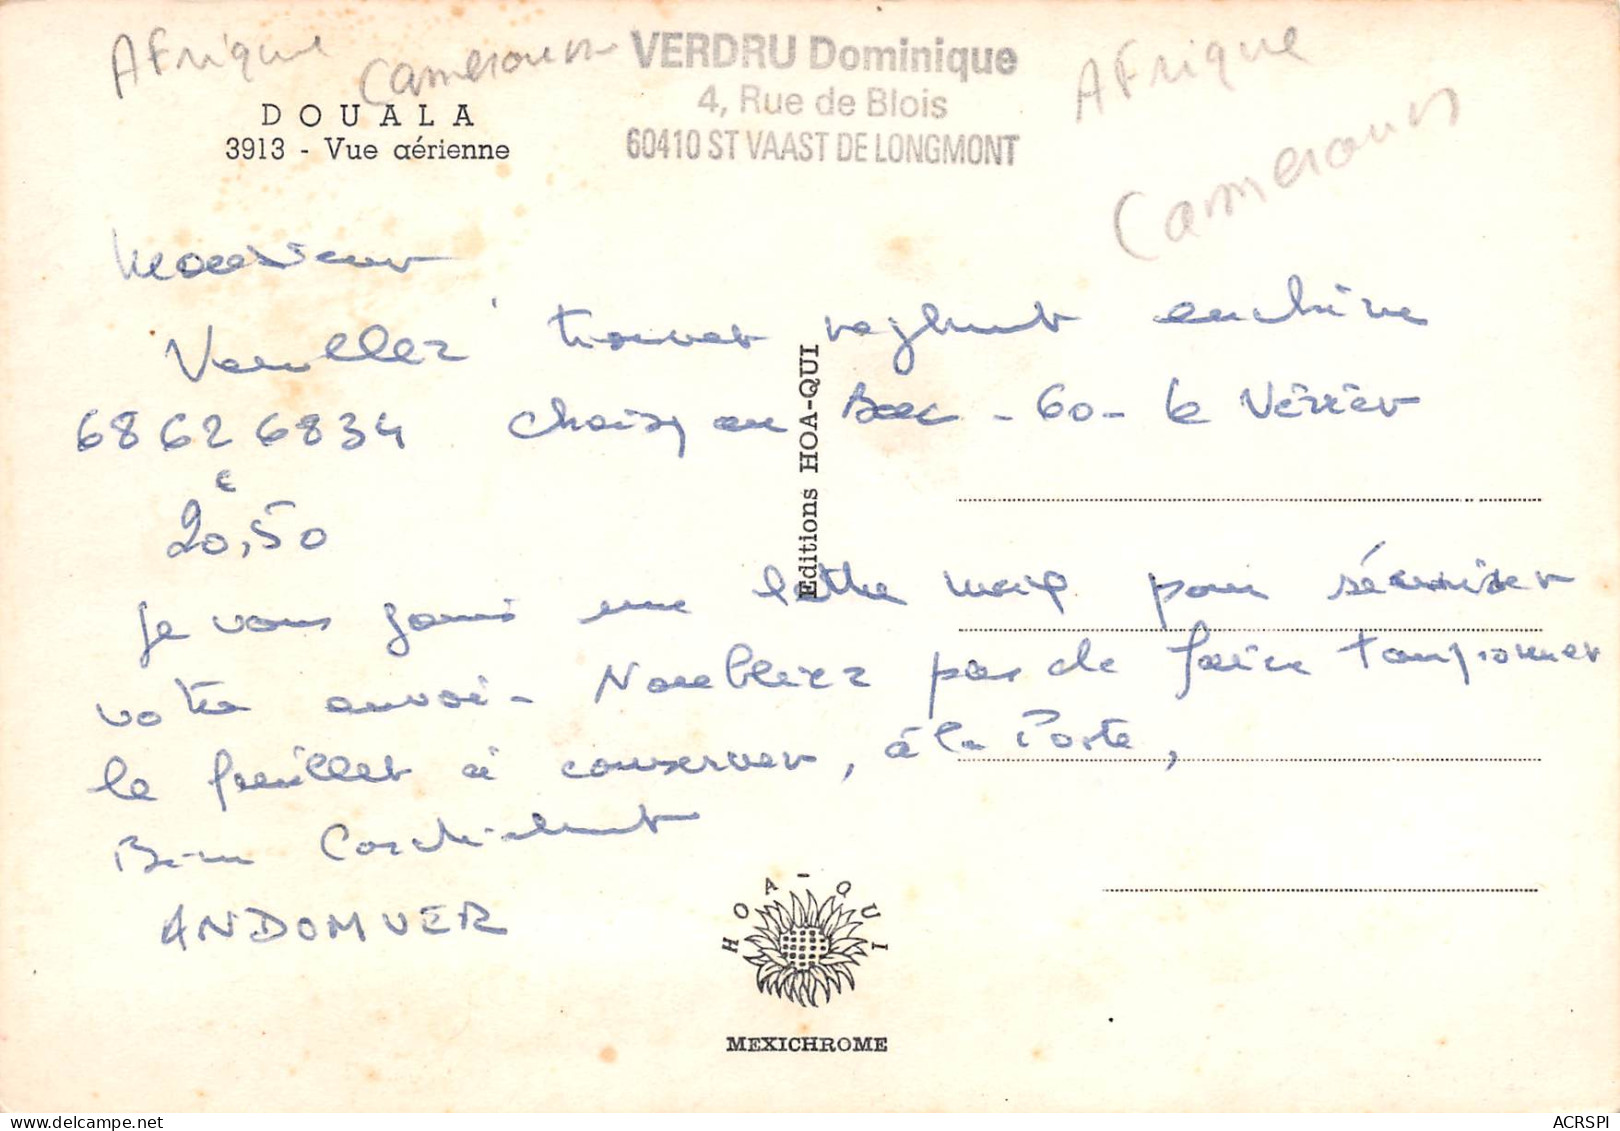 Afrique Cameroun
VERDRU Dominique
4, Rue de Blois
60410 ST VAAST DE LONGMONT
Afrique
Cameroun
DOUALA
3913 - Vue aérienne
Monsieur
Veuillez trouver règlement enchère
68626834 Choisy au Bac - 60 - le Verrier
€
20,50
Je vous joins une lettre max pour sécuriser
votre envoi - N'oubliez pas de faire tamponner
le feuillet à conserver, à la Poste,
Bien Cordialement
ANDOMVER
Editions HOA-QUI
HOA-QUI
MEXICHROME
ACRSPI